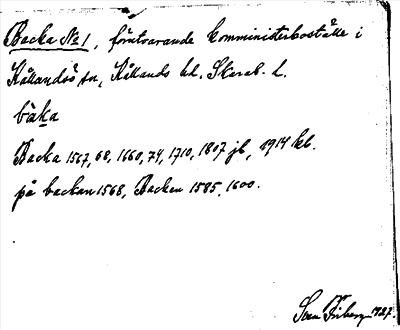 Backa No 1, förutvarande komministerboställe i
Kållandsö sn, Kållands hd, Skarab. l.
bàka
Backa 1567, 68, 1660, 74, 1710, 1807 jb, 1914 kb.
på backan 1568, Backen 1585, 1600.
Sven Friberg 1927.